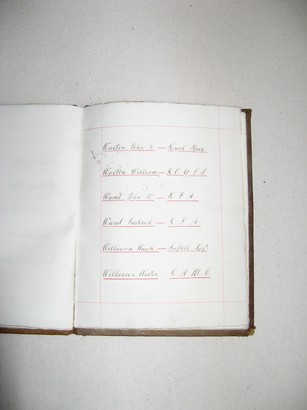 Walton John W — Royal Navy
Walton William — K.O.Y.L.I.
Ward John W — R F A
Ward Frederick — R F A
Wilkinson Hugh — Suffolk Regt
Wilkinson Walter R. A. M. C